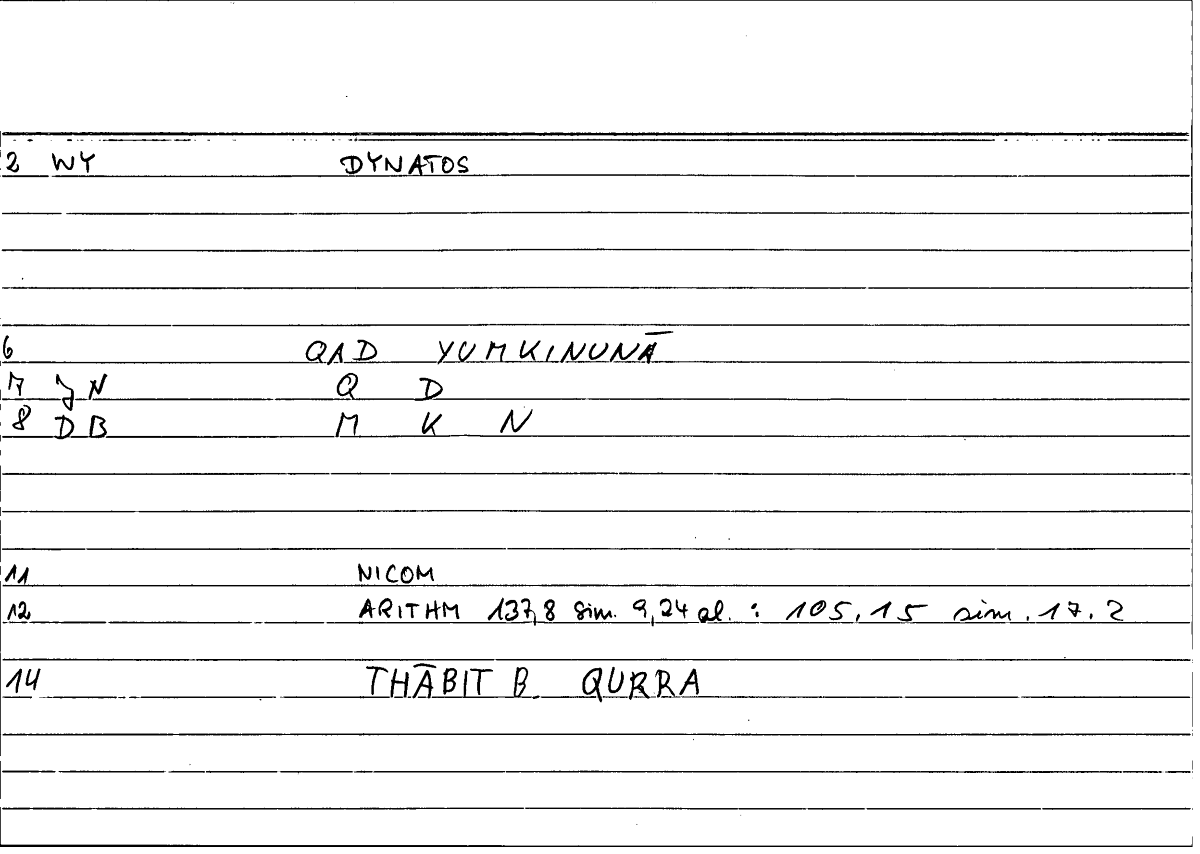 2 WY DYNATOS
6 QAD YUMKINUNĀ
7 JN Q D
8 DB M K N
11 NICOM
12 ARITHM 137,8 sim. 9,24 al. : 105.15 sim. 17.2
14 THĀBIT B. QURRA